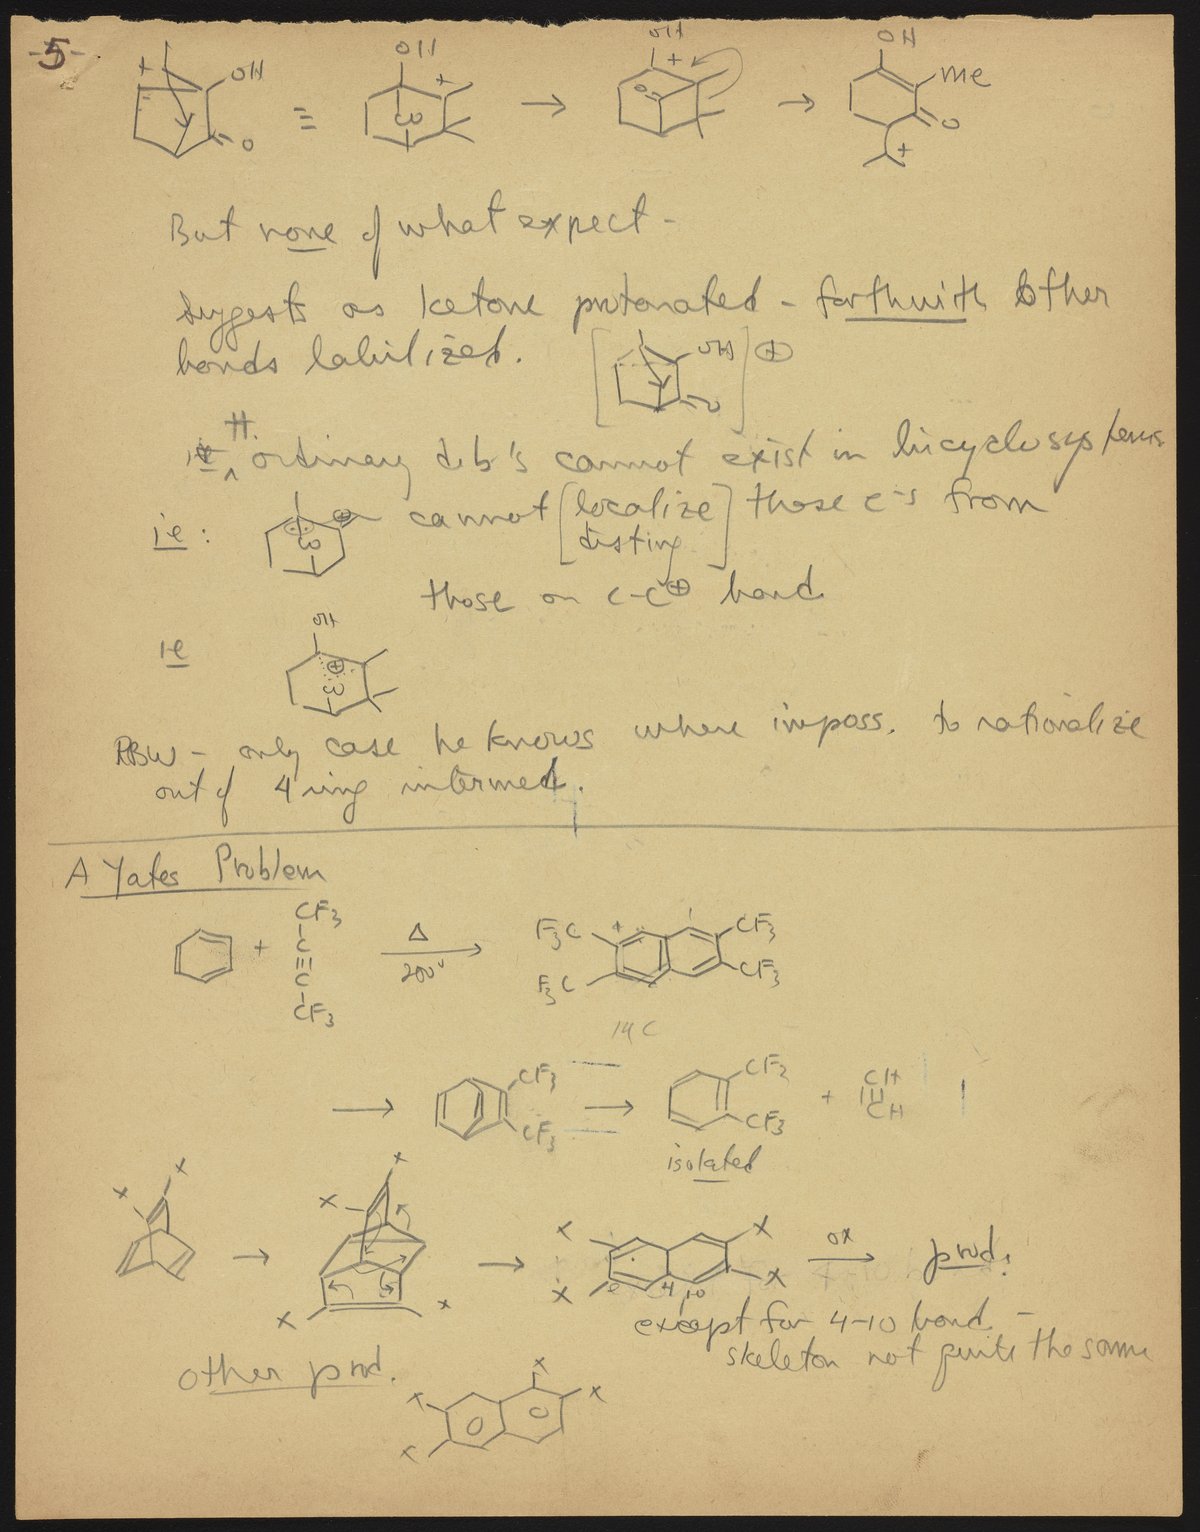 -5-
+ OH O ≡ OH + CO → OH + O → OH Me O +
But none of what expect -
Suggests as ketone protonated - forthwith other
bonds labilized. [ OH O ] ⊕
ordinary d.b's cannot exist in bicyclo systems
ie: ⊕ CO cannot [localize those e-s from
disting]
those on C-C⊕ bond
ie OH ⊕ CO
RBW - only case he knows where imposs. to rationalize
out of 4 ring intermed.
A Yates Problem
+ CF3 C≡C CF3 Δ 200° → F3C F3C CF3 CF3
14C
→ CF3 CF3 → CF3 CF3 + CH≡CH
isolated
X X → X X X X → X X X X 4 10 ox → prod.
except for 4-10 bond -
skeleton not quite the same
other prod.
X X X X